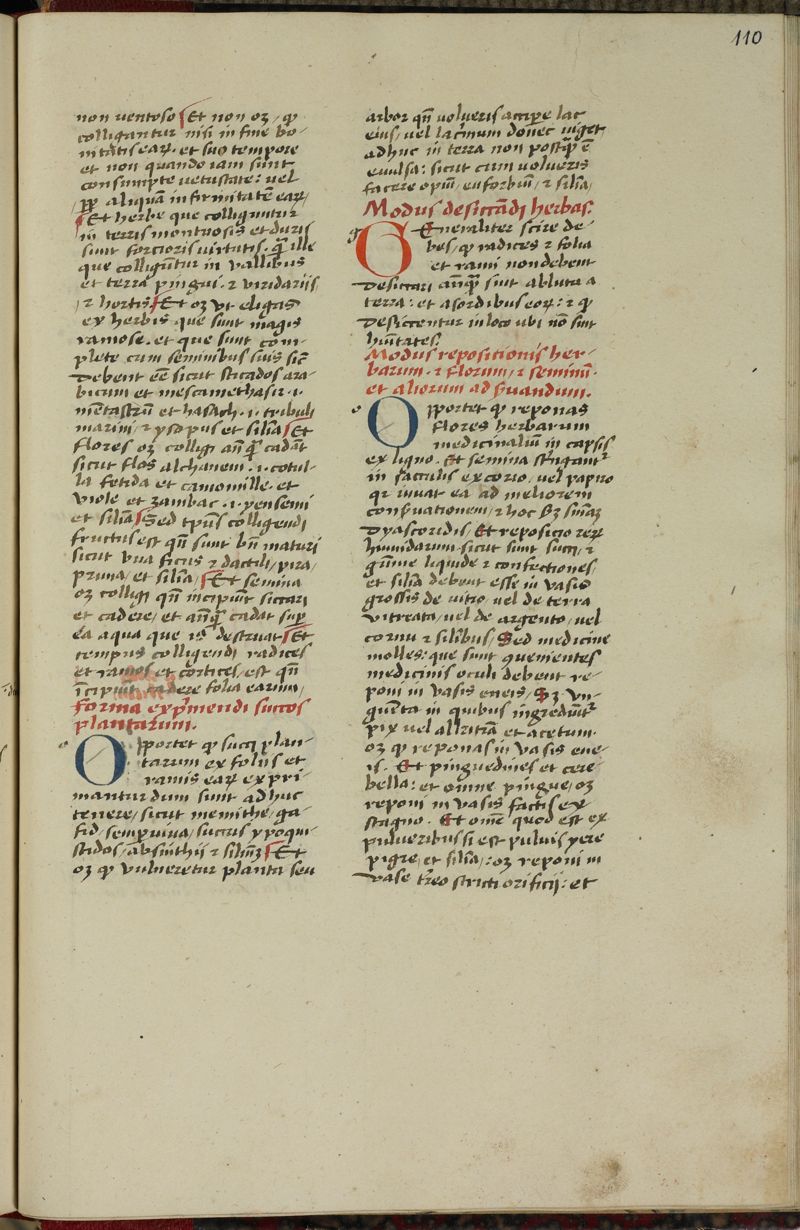 110
non ventoso Et non oꝫ / qͥ
colligantur nisi in fine bo-
nitatis eaꝝ. et suo tempore
et non quando iam sunt
consumpte vetustate: vel
ꝓpͥ aliquã infirmitatẽ eaꝝ /
Et herbe que colliguntur
in terris montuosis et duris
sunt fortioris virtutis. qͣ ille
que colligũtur in vallibus
et terra pingui. ⁊ viridariis
/ ⁊ hortis / Et oꝫ vt eligas
ex herbis que sunt magis
ramose. et que sunt com-
plete cum seminibus suis sic̃
debent eẽ sicut sticados ara-
bicum et mescamethasir .i.
mẽtastrũ et hasach .i. tribuli
marini / ⁊ ysopus et silĩa Et
flores oꝫ colligi an̄qͣ cadãt
sicut flos alchanem .i. cotul-
la fetida et camomille. et
viole et zambac .i. yensemi
et silĩa Sed tp̃us colligendi
fructus est qñ sunt bñ maturi
sicut vua ficus ⁊ dactili / pira /
pruna / et silĩa / Et semina
oꝫ colligi qñ incipiũt siccari
et cadere / et an̄qͣ cadat suꝑ
ea aqua que destruat Et
tempus colligendi radices
et ramos et cortices / est qñ
ĩcipiũt cadere folia earum /
forma exp̃mendi succos
plantarum.
o Oportet qͥ succi plan-
tarum ex foliis et
ramis eaꝝ expri-
mantur dum sunt adhuc
tenere / sicut memithe / ga-
fid / semperviva / succus ypoqui-
stidos / absinthij ⁊ silĩuꝫ Et
oꝫ qͥ vulneretur planta seu
arbor qñ volueris accipe lac
eius / vel lacrimum donec viget
adhuc in terra non postqͣ ẽ
evulsa: sicut cum volueris
facere opiũ / euforbiũ / ⁊ silĩa /
Modus desiccãdi herbas.
g Generaliter scire de-
bes / qͥ radices ⁊ folia
et rami non debent
desiccari an̄qͣ sint abluta a
terra: et a sordibus eoꝝ: ⁊ qͥ
desiccentur in loco ubi nõ sint
hũitates.
Modus repositionis her-
barum. ⁊ florum / ⁊ seminũ.
et aliorum ad ẞuandum.
o Oportet qͥ reponas
flores herbarum
medicinaliũ in capsis
ex ligno. Et semina stringantᷣ
in sacculis ex corio. vel papiro
qꝛ iuvat ea ad meliorem
conẞuationem / ⁊ hoc ẞꝫ sniãꝫ
dyascoridis / Et repositio reꝝ
humidarum sicut sunt succi / ⁊
gũme liquide ⁊ confectiones
et silĩa debent esse in vasis
grossis de vitro vel de terra
vitreata / vel de argento / vel
cornu ⁊ silĩbus / Sed medicine
molles: que sunt quenientes
medicinis oculi debent re-
poni in vasis eneis / Sꝫ vn-
guẽta in quibus ingrediũtᷣ
pix vel alkitrã et acetum.
oꝫ qͥ reponas in vasis ene-
is. Et pinguedines et cere-
bella: et omne pingue / oꝫ
reponi in vasis factis ex
stagno. Et omẽ quod est ex
pulveribus si est pulvis yere
pigre / et silĩa /: oꝫ reponi in
vase t̃reo stricti orificij: et